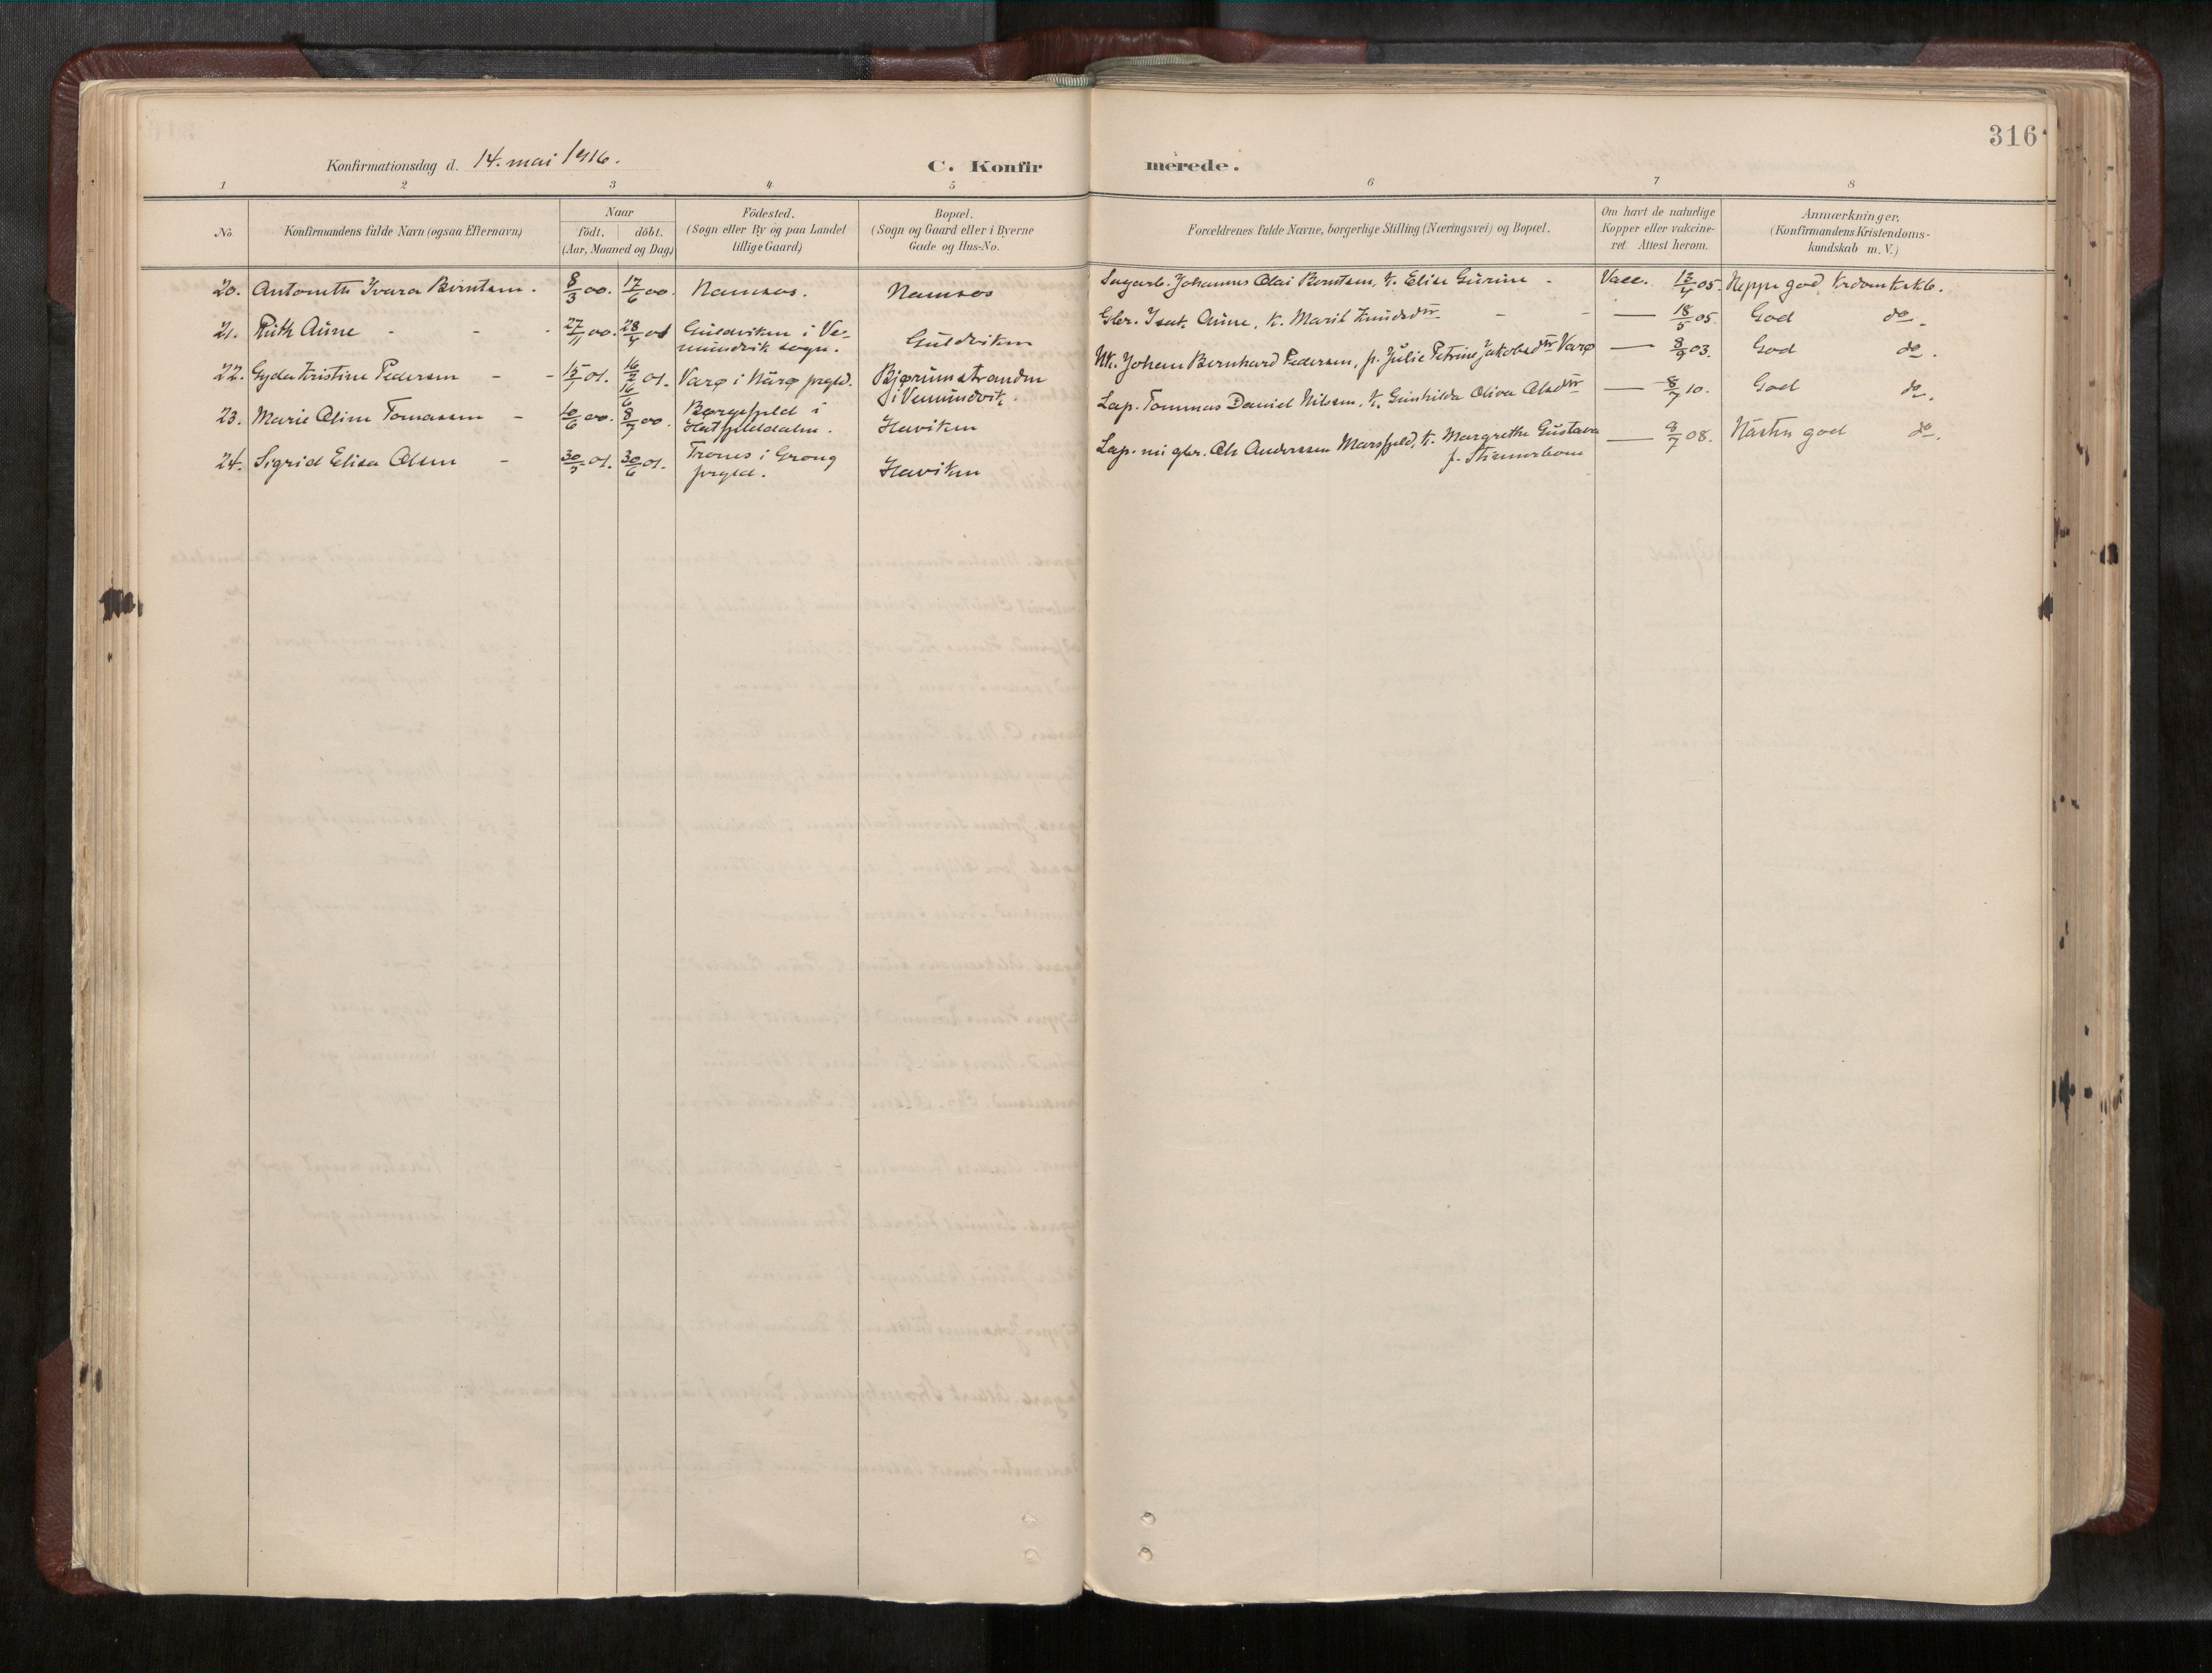 316
Konfirmationsdag d. 14. mai 1916.
C. Konfirmerede.
1 2 3 4 5 6 7 8
No.
Konfirmandens fulde Navn (ogsaa Efternavn)
Naar
födt. döbt.
(Aar, Maaned og Dag)
Födested.
(Sogn eller By og paa Landet
tillige Gaard)
Bopæl.
(Sogn og Gaard eller i Byerne
Gade og Hus-No.
Forældrenes fulde Navne, borgerlige Stilling (Næringsvei) og Bopæl.
Om havt de naturlige
Kopper eller vakcine-
ret. Attest herom.
Anmærkninger.
(Konfirmandens Kristendoms-
kundskab m. V.)
20. Antonette Ivara Berntsen. 8/3 00. 17/6 00. Namsos. Namsos Sagarb. Johannes Olai Berntsen, k. Elise Gurine - Vacc. 12/4 05. Neppe god Krdomskskb.
21. Ruth Aune - - - 27/11 00. 28/4 01 Guldviken i Ve-
mundvik sogn. Guldviken Gbr. Isak Aune, k. Marit Knudsdtr - - — 18/5 05 God do.
22. Gyda Kristine Pedersen - - 15/1 01. 16/2 01. Varø i Nærø prgld. Bjørumstranden
i Vemundvik. Johan Bernhard Pedersen, p. Julie Petrine Jakobsdtr Varø — 8/9 03. God do.
23. Marie Oline Tomassen - 10/6 00. 8/7 00. Børgefjeld i
Hatfjelddalen. Haviken Lap. Tommas Daniel Nilsen, k. Gunhilda Oliva Olsdtr — 8/7 10. God do.
24. Sigrid Elisa Olsen - 30/5 01. 30/6 01. Trones i Grong
prgld. Haviken Lap. nu gbr. Ole Anderssen Marsfjeld, k. Margrethe Gustava
f. — 9/7 08. Næsten god do.